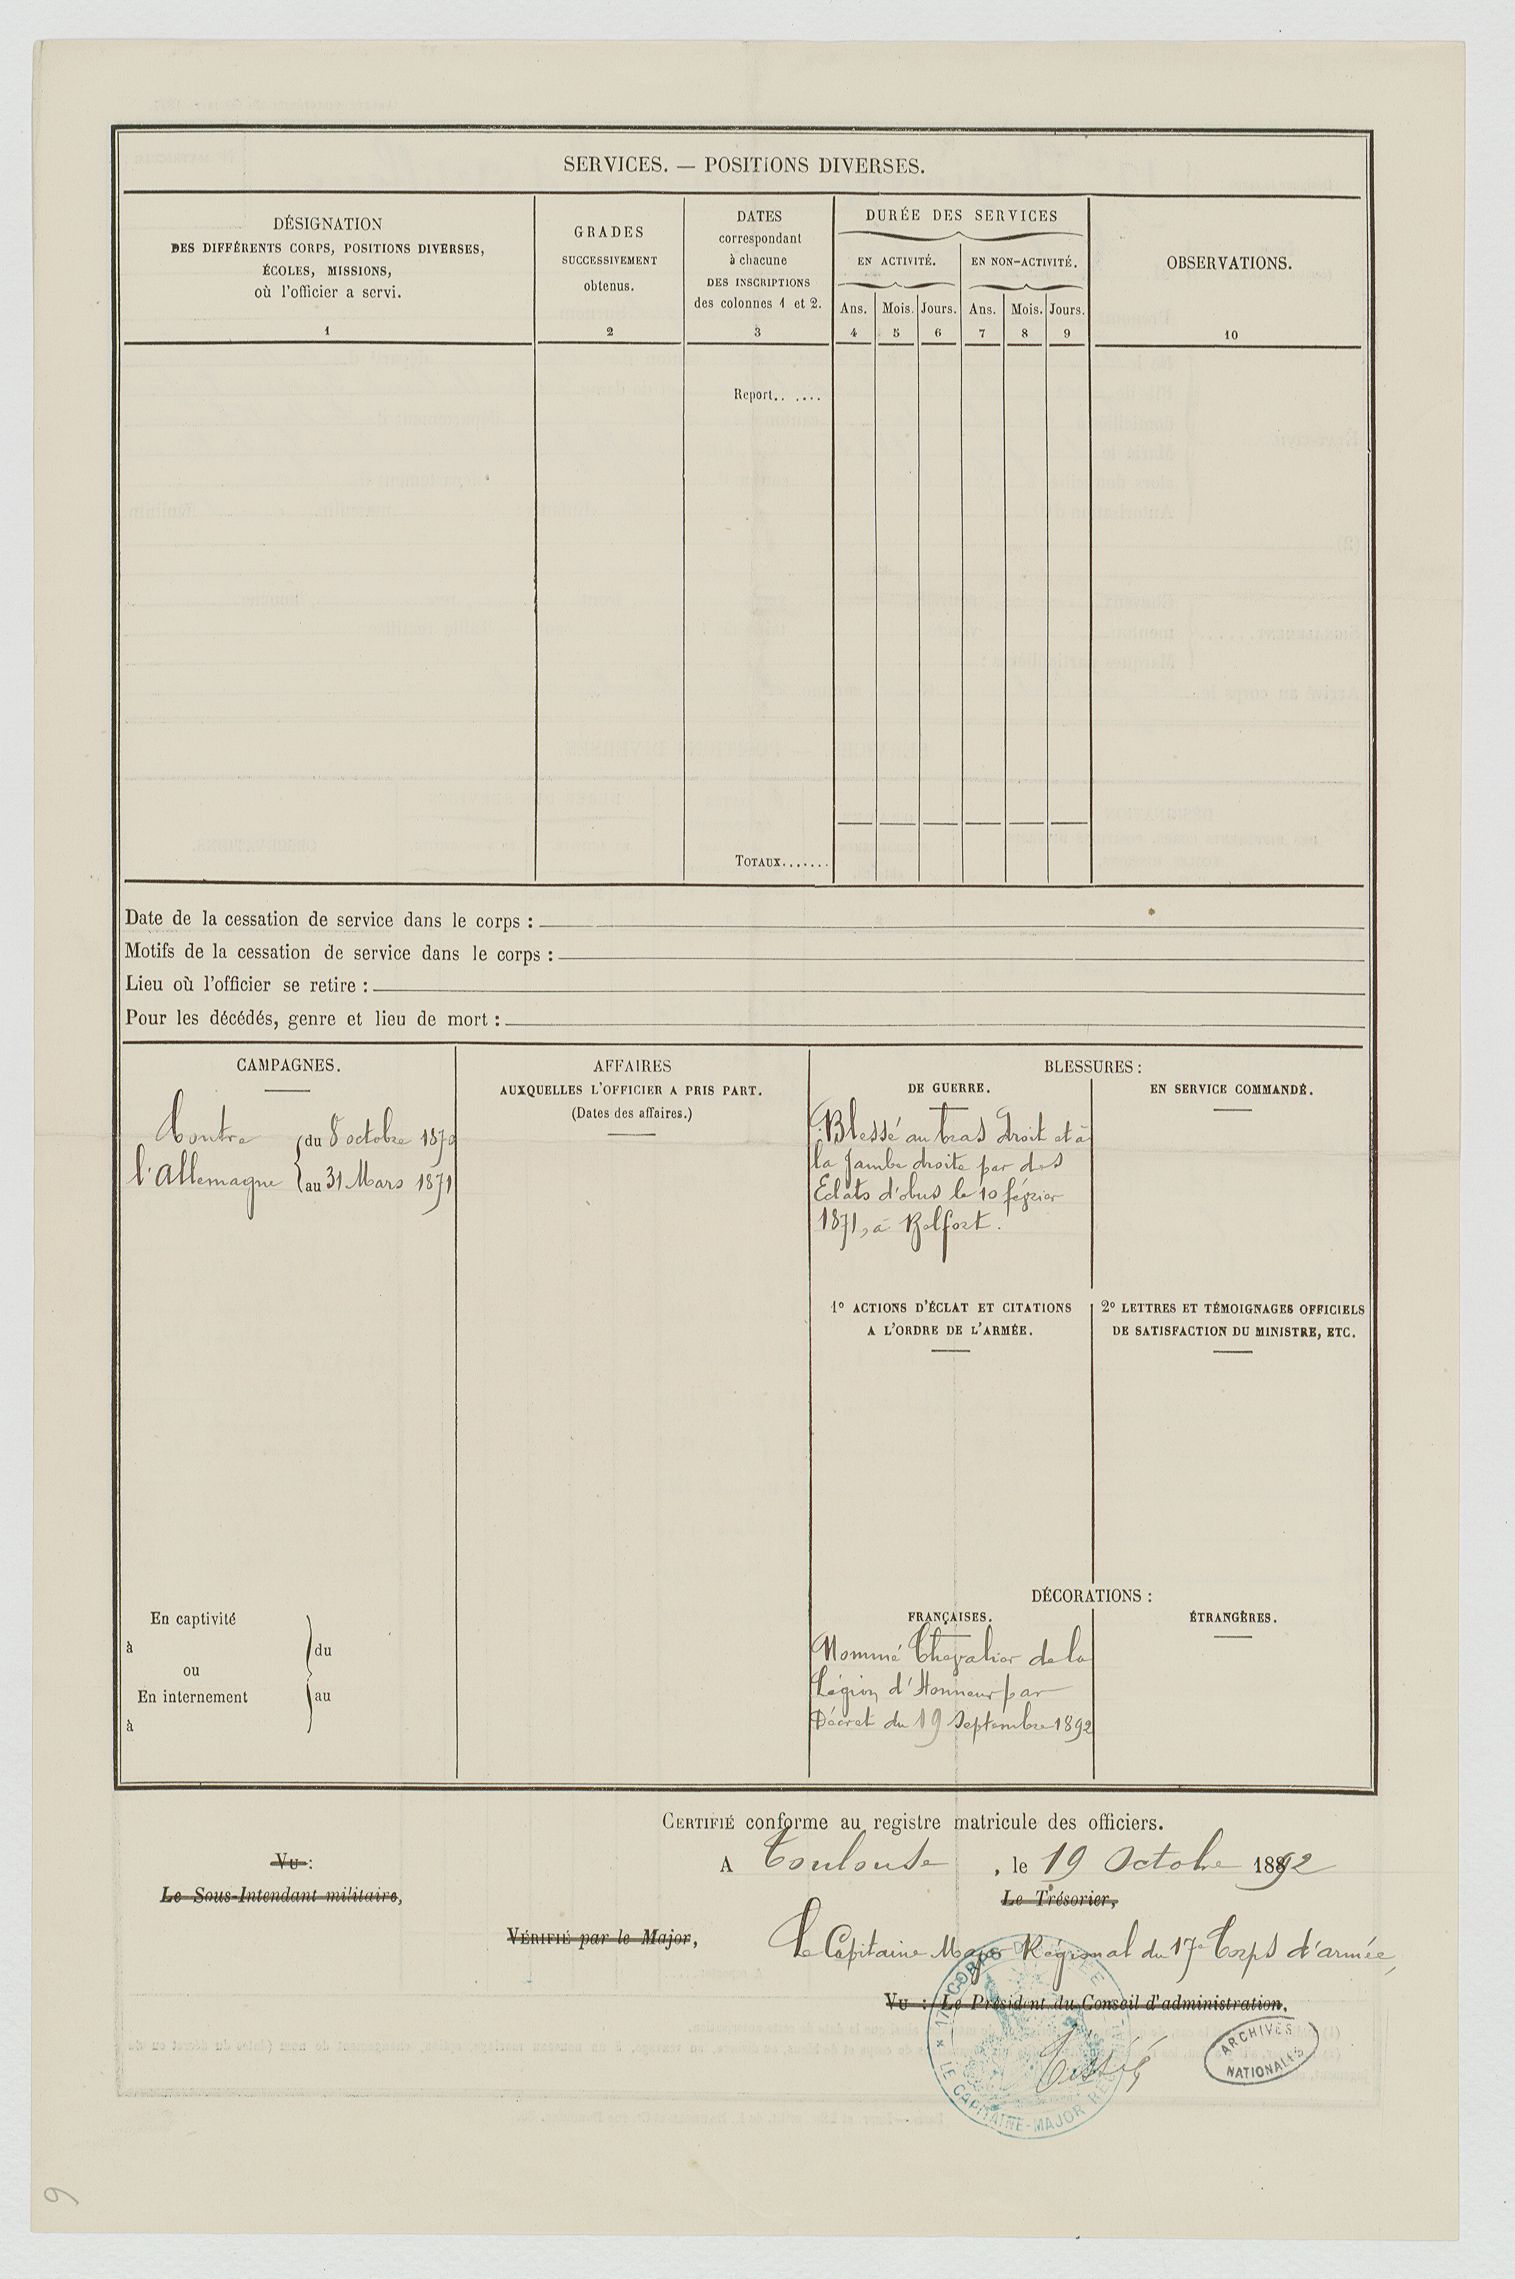 SERVICES. — POSITIONS DIVERSES.
DÉSIGNATION
DES DIFFÉRENTS CORPS, POSITIONS DIVERSES,
ÉCOLES, MISSIONS,
où l'officier a servi.
1
GRADES
SUCCESSIVEMENT
obtenus.
2
DATES
correspondant
à chacune
DES INSCRIPTIONS
des colonnes 1 et 2.
3
DURÉE DES SERVICES
EN ACTIVITÉ.
EN NON-ACTIVITÉ.
Ans. Mois. Jours. Ans. Mois. Jours.
4 5 6 7 8 9
OBSERVATIONS.
10
Report.. ....
TOTAUX.......
Date de la cessation de service dans le corps :
Motifs de la cessation de service dans le corps :
Lieu où l'officier se retire :
Pour les décédés, genre et lieu de mort :
CAMPAGNES.
Contre
l'Allemagne
du 8 octobre 1870
au 31 Mars 1871
En captivité
à
ou
En internement
à
du
au
AFFAIRES
AUXQUELLES L'OFFICIER A PRIS PART.
(Dates des affaires.)
BLESSURES :
DE GUERRE.
Blessé au bras droit et à
la jambe droite par des
Eclats d'obus le 10 février
1871, à Belfort.
EN SERVICE COMMANDÉ.
1° ACTIONS D'ÉCLAT ET CITATIONS
A L'ORDRE DE L'ARMÉE.
2° LETTRES ET TÉMOIGNAGES OFFICIELS
DE SATISFACTION DU MINISTRE, ETC.
DÉCORATIONS :
FRANÇAISES.
Nommé Chevalier de la
Légion d'Honneur par
Décret du 19 Septembre 1892
ÉTRANGÈRES.
CERTIFIÉ conforme au registre matricule des officiers.
A Toulouse, le 19 Octobre 1892
Vu :
Le Sous-Intendant militaire,
Le Trésorier,
VÉRIFIÉ par le Major,
Le Capitaine Major Régional du 17e Corps d'armée,
Vu : Le Président du Conseil d'administration,
17e CORPS D'ARMÉE
LE CAPITAINE-MAJOR RÉG
ARCHIVES
NATIONALES
9